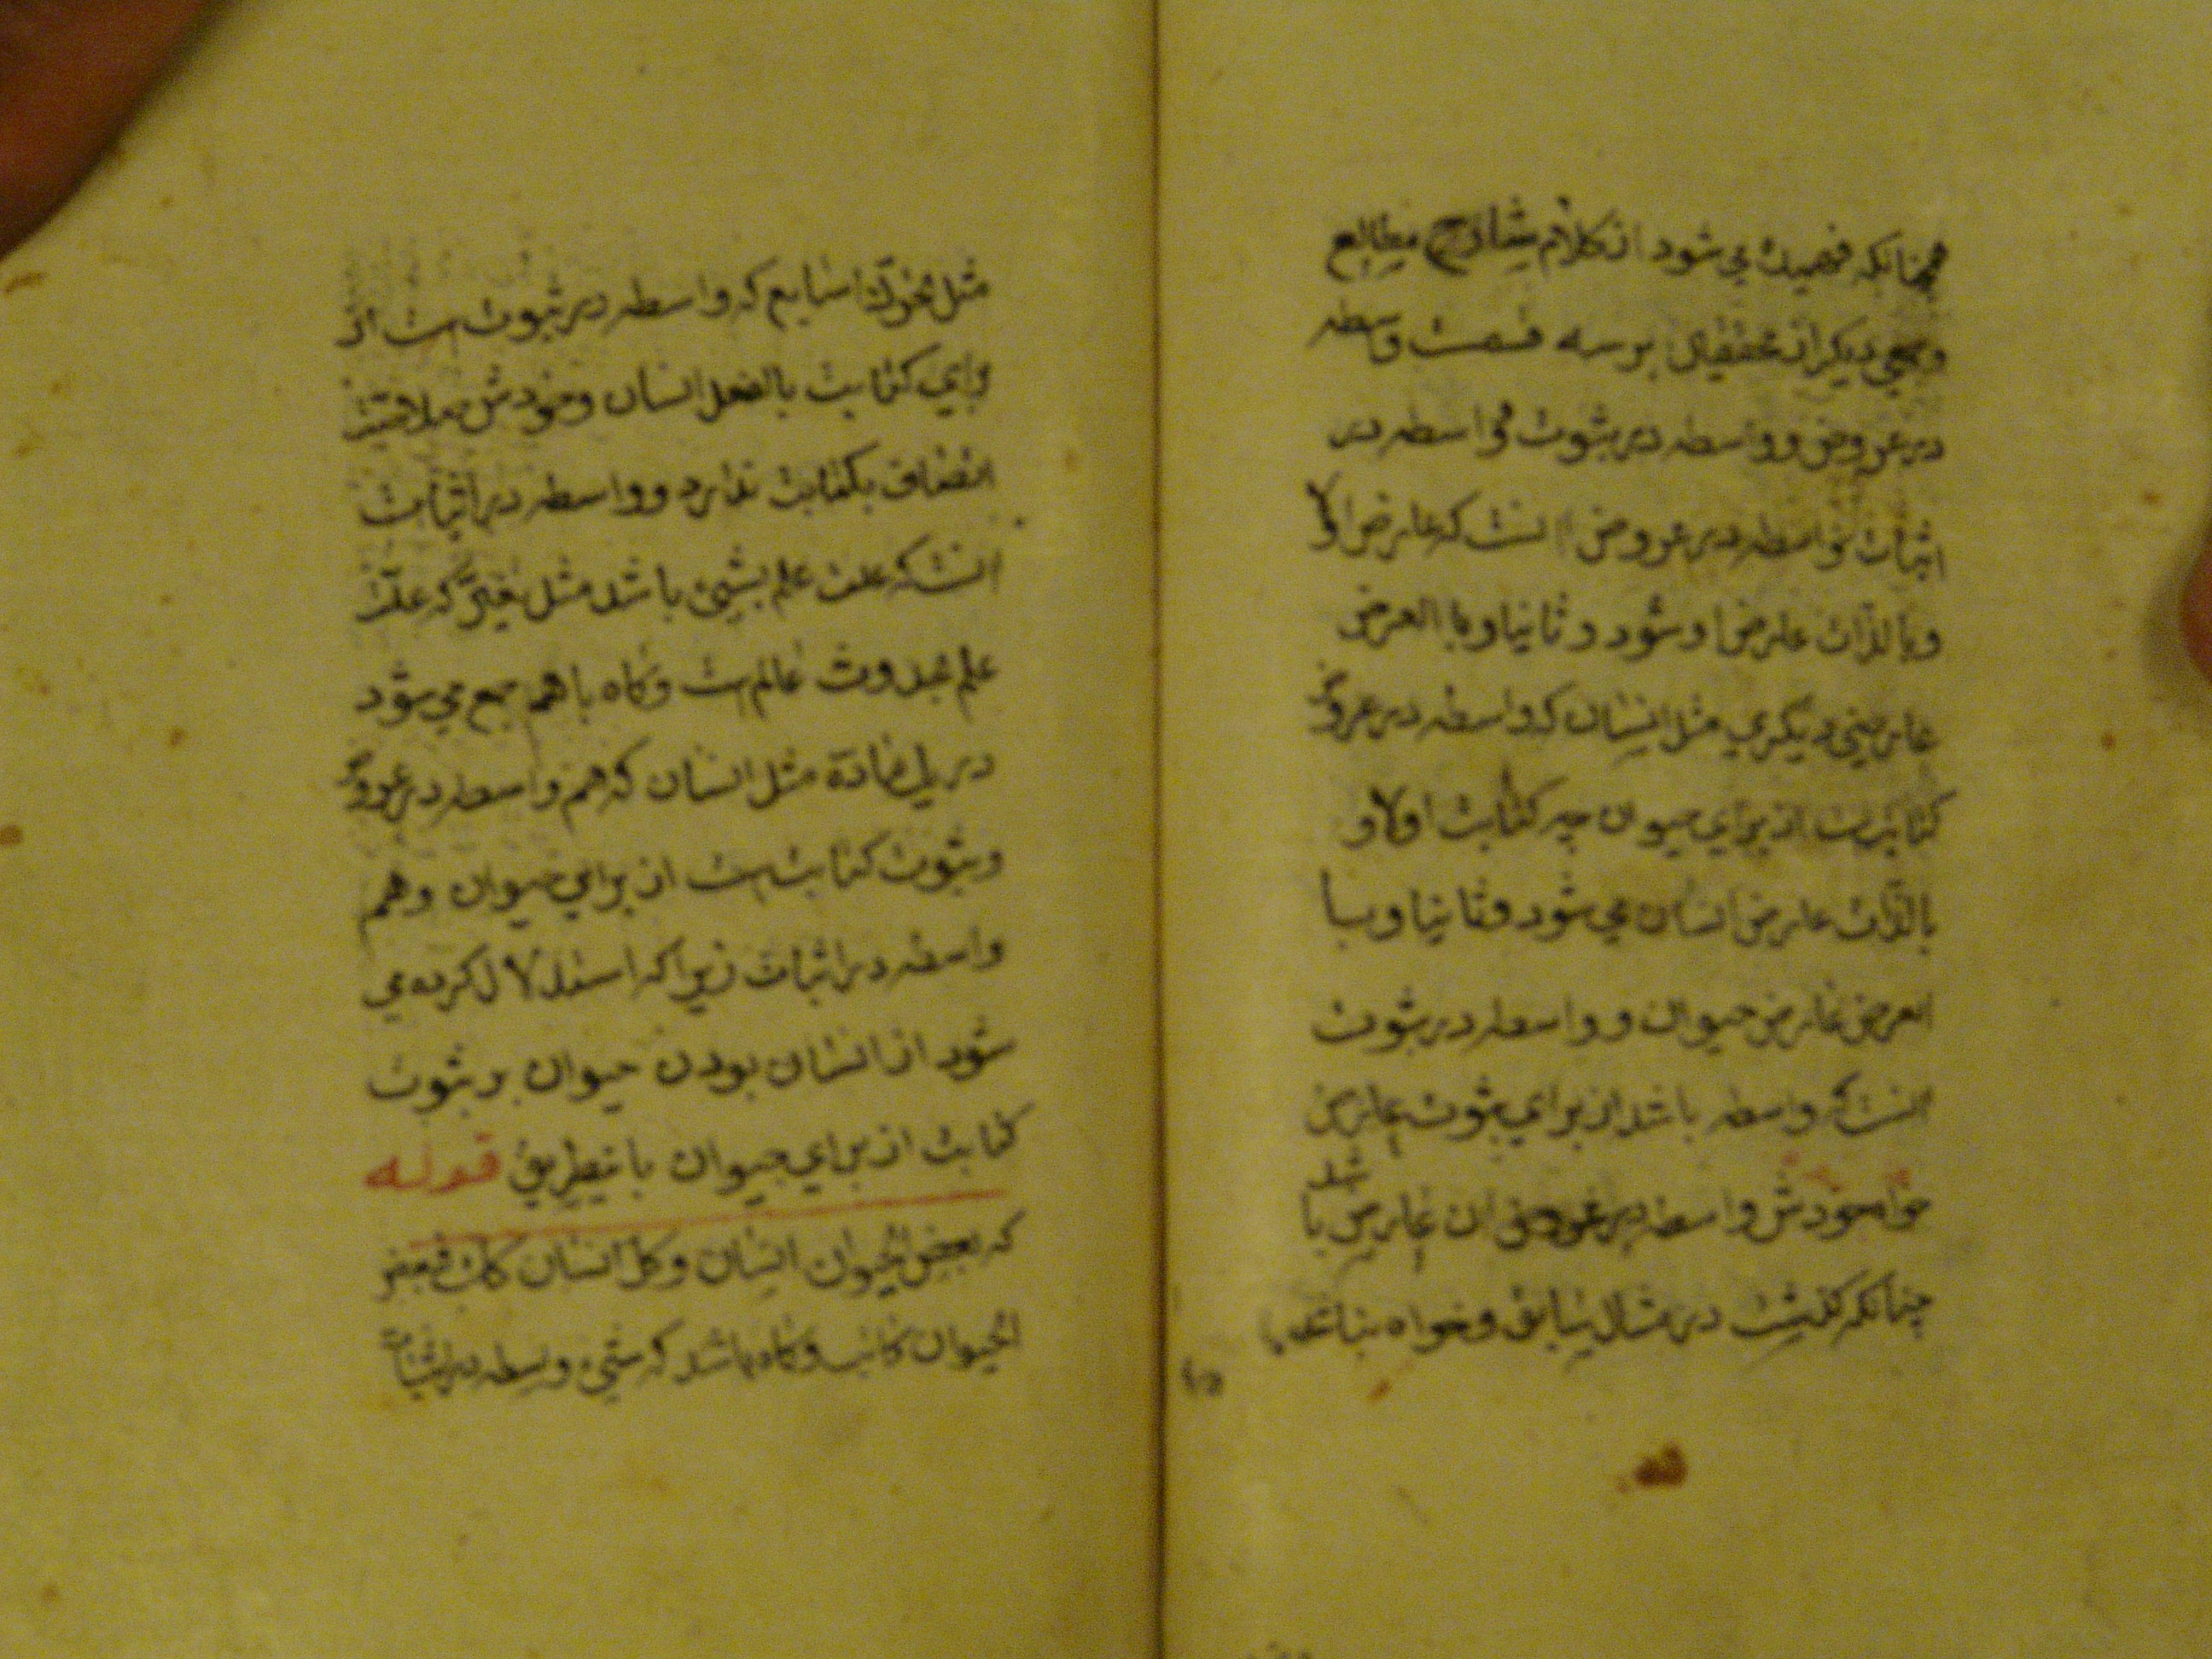 چنانکه فهمیده می شود از کلام شارح مطالع
و جمعی دیکر از محققان بر سه قسمت واسطه
در عروض و واسطه در ثبوت و واسطه در
اثبات واسطه در عروض انست که عارض اولا
و بالذات عارض او شود و ثانیا و با العرض
عارض دیگری مثل انسان که واسطه در عروض
کتابتست از برای حیوان چه کتابت اولا و
بالذات عارض انسان می شود و ثانیا و با
لعرض عارض حیوان و واسطه در ثبوت
انست که واسطه باشد از برای ثبوت عارض
خواه خودش واسطه در عروض ان عارض با
شد
چنانکه کذشت در مثال سابق و خواه نباشد
مثل که واسطه در ثبوتست از
برای کتابت بالفعل انسان و خودش
اتصاف بکتابت ندارد و واسطه در اثبات
انست که علت علم بشیئ باشد مثل تغیر که علت
علم بحدوث عالم است و کاه با هم جمع می شود
در یك ماده مثل انسان که هم واسطه در عروض
و ثبوت کتابت است از برای حیوان و هم
واسطه در اثبات زیرا که استدلال کرده می
شود از انسان بودن حیوان بر ثبوت
کتابت از برای حیوان باینطریق قوله
که بعض الحیوان انسان و کل انسان کاتب فبعض
الحیوان کاتب و کاه باشد که شیئ واسطه در اثبات